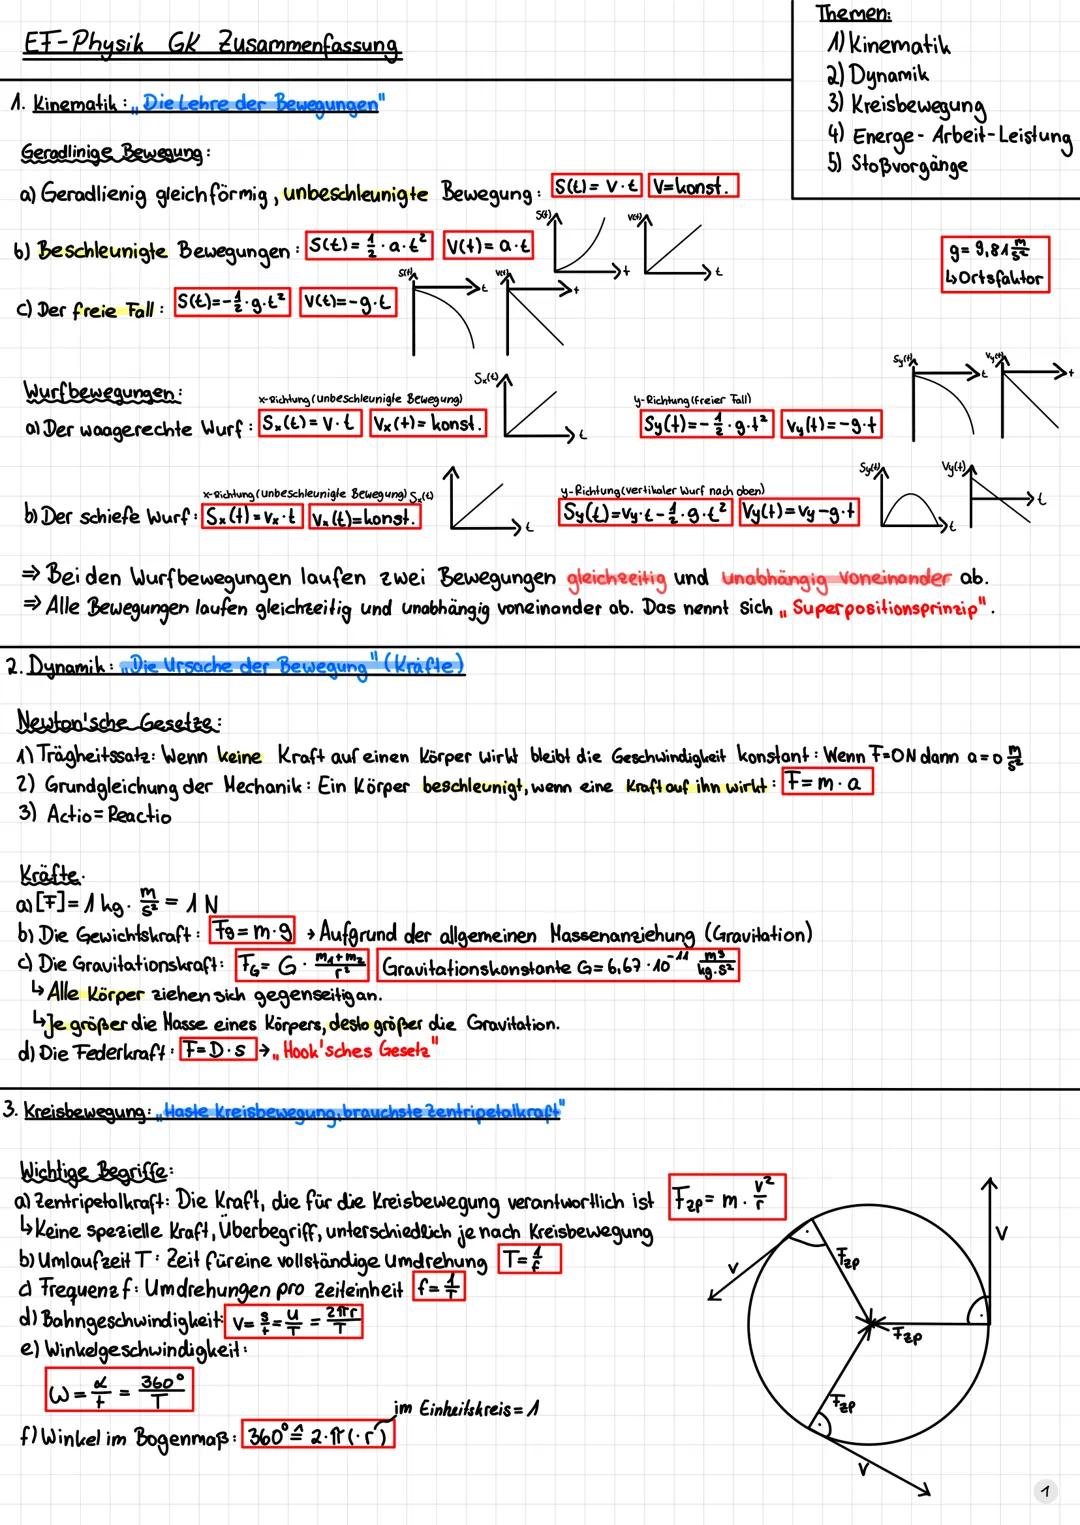 EF-Physik GK Zusammenfassung
Themen:
1) Kinematik
2) Dynamik
3) Kreisbewegung
4) Energe- Arbeit-Leistung
5) Stoßvorgänge
1. Kinematik: „Die Lehre der Bewegungen"
Geradlinige Bewegung:
a) Geradlienig gleichförmig, unbeschleunigte Bewegung: S(t) = v·t V=konst.
S(t) V(t) t t
b) Beschleunigte Bewegungen: S(t) = 1/2 · a · t² V(t) = a·t
g = 9,81 m/s²
↳Ortsfaktor
S(t) t V(t) t
c) Der freie Fall: S(t)=-1/2·g·t² V(t)=-g·t
Wurfbewegungen:
x-Richtung (unbeschleunigte Bewegung) Sx(t) t y-Richtung (freier Fall) Sy(t) t Vy(t) t
a) Der waagerechte Wurf: Sx(t) = V·t Vx(t)= konst. Sy(t)=-1/2·g·t² Vy(t)=-g·t
x-Richtung (unbeschleunigte Bewegung) Sx(t) t y-Richtung (vertikaler Wurf nach oben) Sy(t) t Vy(t) t
b) Der schiefe Wurf: Sx(t) = Vx·t Vx(t)=konst. Sy(t)=Vy·t-1/2·g·t² Vy(t)=Vy-g·t
⇒ Bei den Wurfbewegungen laufen zwei Bewegungen gleichzeitig und unabhängig voneinander ab.
⇒ Alle Bewegungen laufen gleichzeitig und unabhängig voneinander ab. Das nennt sich „Superpositionsprinzip".
2. Dynamik: „Die Ursache der Bewegung" (Kräfte)
Newton'sche Gesetze:
1) Trägheitssatz: Wenn keine Kraft auf einen Körper wirkt bleibt die Geschwindigkeit konstant: Wenn F=0N dann a=0 m/s²
2) Grundgleichung der Mechanik: Ein Körper beschleunigt, wenn eine Kraft auf ihn wirkt: F=m·a
3) Actio=Reactio
Kräfte.
a) [F]=1 kg· m/s² = 1 N
b) Die Gewichtskraft: Fg=m·g → Aufgrund der allgemeinen Massenanziehung (Gravitation)
c) Die Gravitationskraft: FG= G· m1+m2/r² Gravitationskonstante G=6,67·10⁻¹¹ m³/kg·s²
↳Alle Körper ziehen sich gegenseitig an.
↳Je größer die Masse eines Körpers, desto größer die Gravitation.
d) Die Federkraft: F=D·s →„Hook'sches Gesetz"
3. Kreisbewegung: „Haste Kreisbewegung, brauchste Zentripetalkraft"
Wichtige Begriffe:
a) Zentripetalkraft: Die Kraft, die für die Kreisbewegung verantwortlich ist Fzp= m· v²/r
↳Keine spezielle Kraft, Überbegriff, unterschiedlich je nach Kreisbewegung
b) Umlaufzeit T: Zeit für eine vollständige Umdrehung T=1/f
c) Frequenz f: Umdrehungen pro Zeiteinheit f=1/T
d) Bahngeschwindigkeit: V= s/t = U/T = 2πr/T
e) Winkelgeschwindigkeit:
ω = α/t = 360°/T
im Einheitskreis=1
f) Winkel im Bogenmaß: 360° ≙ 2·π(·r)
V
V
Fzp
Fzp
Fzp
V
1